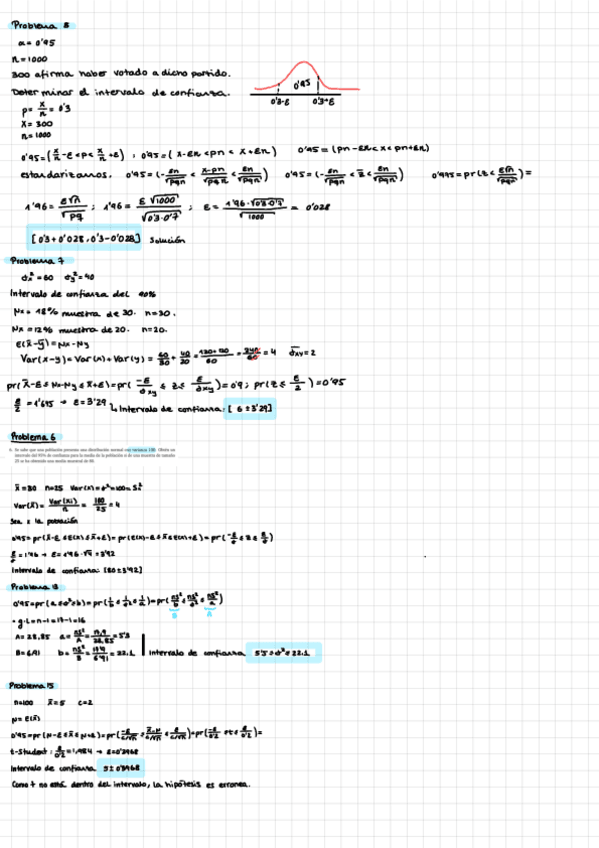 Problema 8
α = 0'95
n = 1000
300 afirma haber votado a dicho partido.
Determinar el intervalo de confianza.
0'95
0'3-ε 0'3+ε
p = x/n = 0'3
X = 300
n = 1000
0'95 = (x/n - ε < p < x/n + ε) ; 0'95 = (x - εn < pn < x + εn) 0'95 = (pn - εn < x < pn + εn)
estandarizamos. 0'95 = (-εn/√pqn < x-pn/√pqn < εn/√pqn) 0'95 = (-εn/√pqn < z < εn/√pqn) 0'975 = pr(z < ε√n/√pqn) =
1'96 = ε√n/√pq ; 1'96 = ε√1000/√0'3·0'7 ; ε = 1'96·√0'3·0'7/√1000 = 0'028
[0'3 + 0'028, 0'3 - 0'028] Solución
Problema 7
σx² = 60 σy² = 40
Intervalo de confianza del 90%
Nx = 18% muestra de 30. n = 30.
Nx = 12% muestra de 20. n = 20.
E(x̄ - ȳ) = Nx - Ny
Var(x-y) = Var(x) + Var(y) = 60/30 + 40/20 = 120+120/60 = 240/60 = 4 σxy = 2
pr(x̄ - ε ≤ Nx - Ny ≤ x̄ + ε) = pr(-ε/σxy ≤ z ≤ ε/σxy) = 0'9 ; pr(z ≤ ε/2) = 0'95
ε/2 = 1'645 → ε = 3'29 ↳ Intervalo de confianza: [6 ± 3'29]
Problema 6
6. Se sabe que una población presenta una distribución normal con varianza 100. Obtén un
intervalo del 95% de confianza para la media de la población si de una muestra de tamaño
25 se ha obtenido una media muestral de 80.
x̄ = 80 n = 25 Var(x) = σ² = 100 = S²
Var(x̄) = Var(xi)/n = 100/25 = 4
Sea x la población
0'95 = pr(x̄ - ε ≤ E(x) ≤ x̄ + ε) = pr(E(x) - ε ≤ x̄ ≤ E(x) + ε) = pr(-ε/σ ≤ z ≤ ε/σ)
ε/σ = 1'96 → ε = 1'96·√4 = 3'92
Intervalo de confianza: [80 ± 3'92]
Problema 13
0'95 = pr(a ≤ σ² ≤ b) = pr(1/b ≤ 1/σ² ≤ 1/a) = pr(ns²/b ≤ ns²/σ² ≤ ns²/a)
B A
· g.L = n - 1 = 17 - 1 = 16
A = 28,85 a = ns²/A = 28,85 = 5'3
B = 6,91 b = ns²/B = 6'91 = 22.1 Intervalo de confianza 5'3 ≤ σ² ≤ 22.1
Problema 15
n = 100 x̄ = 5 c = 2
N = E(x̄)
0'95 = pr(N - ε ≤ x̄ ≤ N + ε) = pr(-ε/c/√n ≤ x̄-N/c/√n ≤ ε/c/√n) = pr(-ε/0'2 ≤ t ≤ ε/0'2) =
t-Student : ε/0'2 = 1,984 → ε = 0'3968
Intervalo de confianza 5 ± 0'3968
Como 7 no está dentro del intervalo, la hipótesis es erronea.